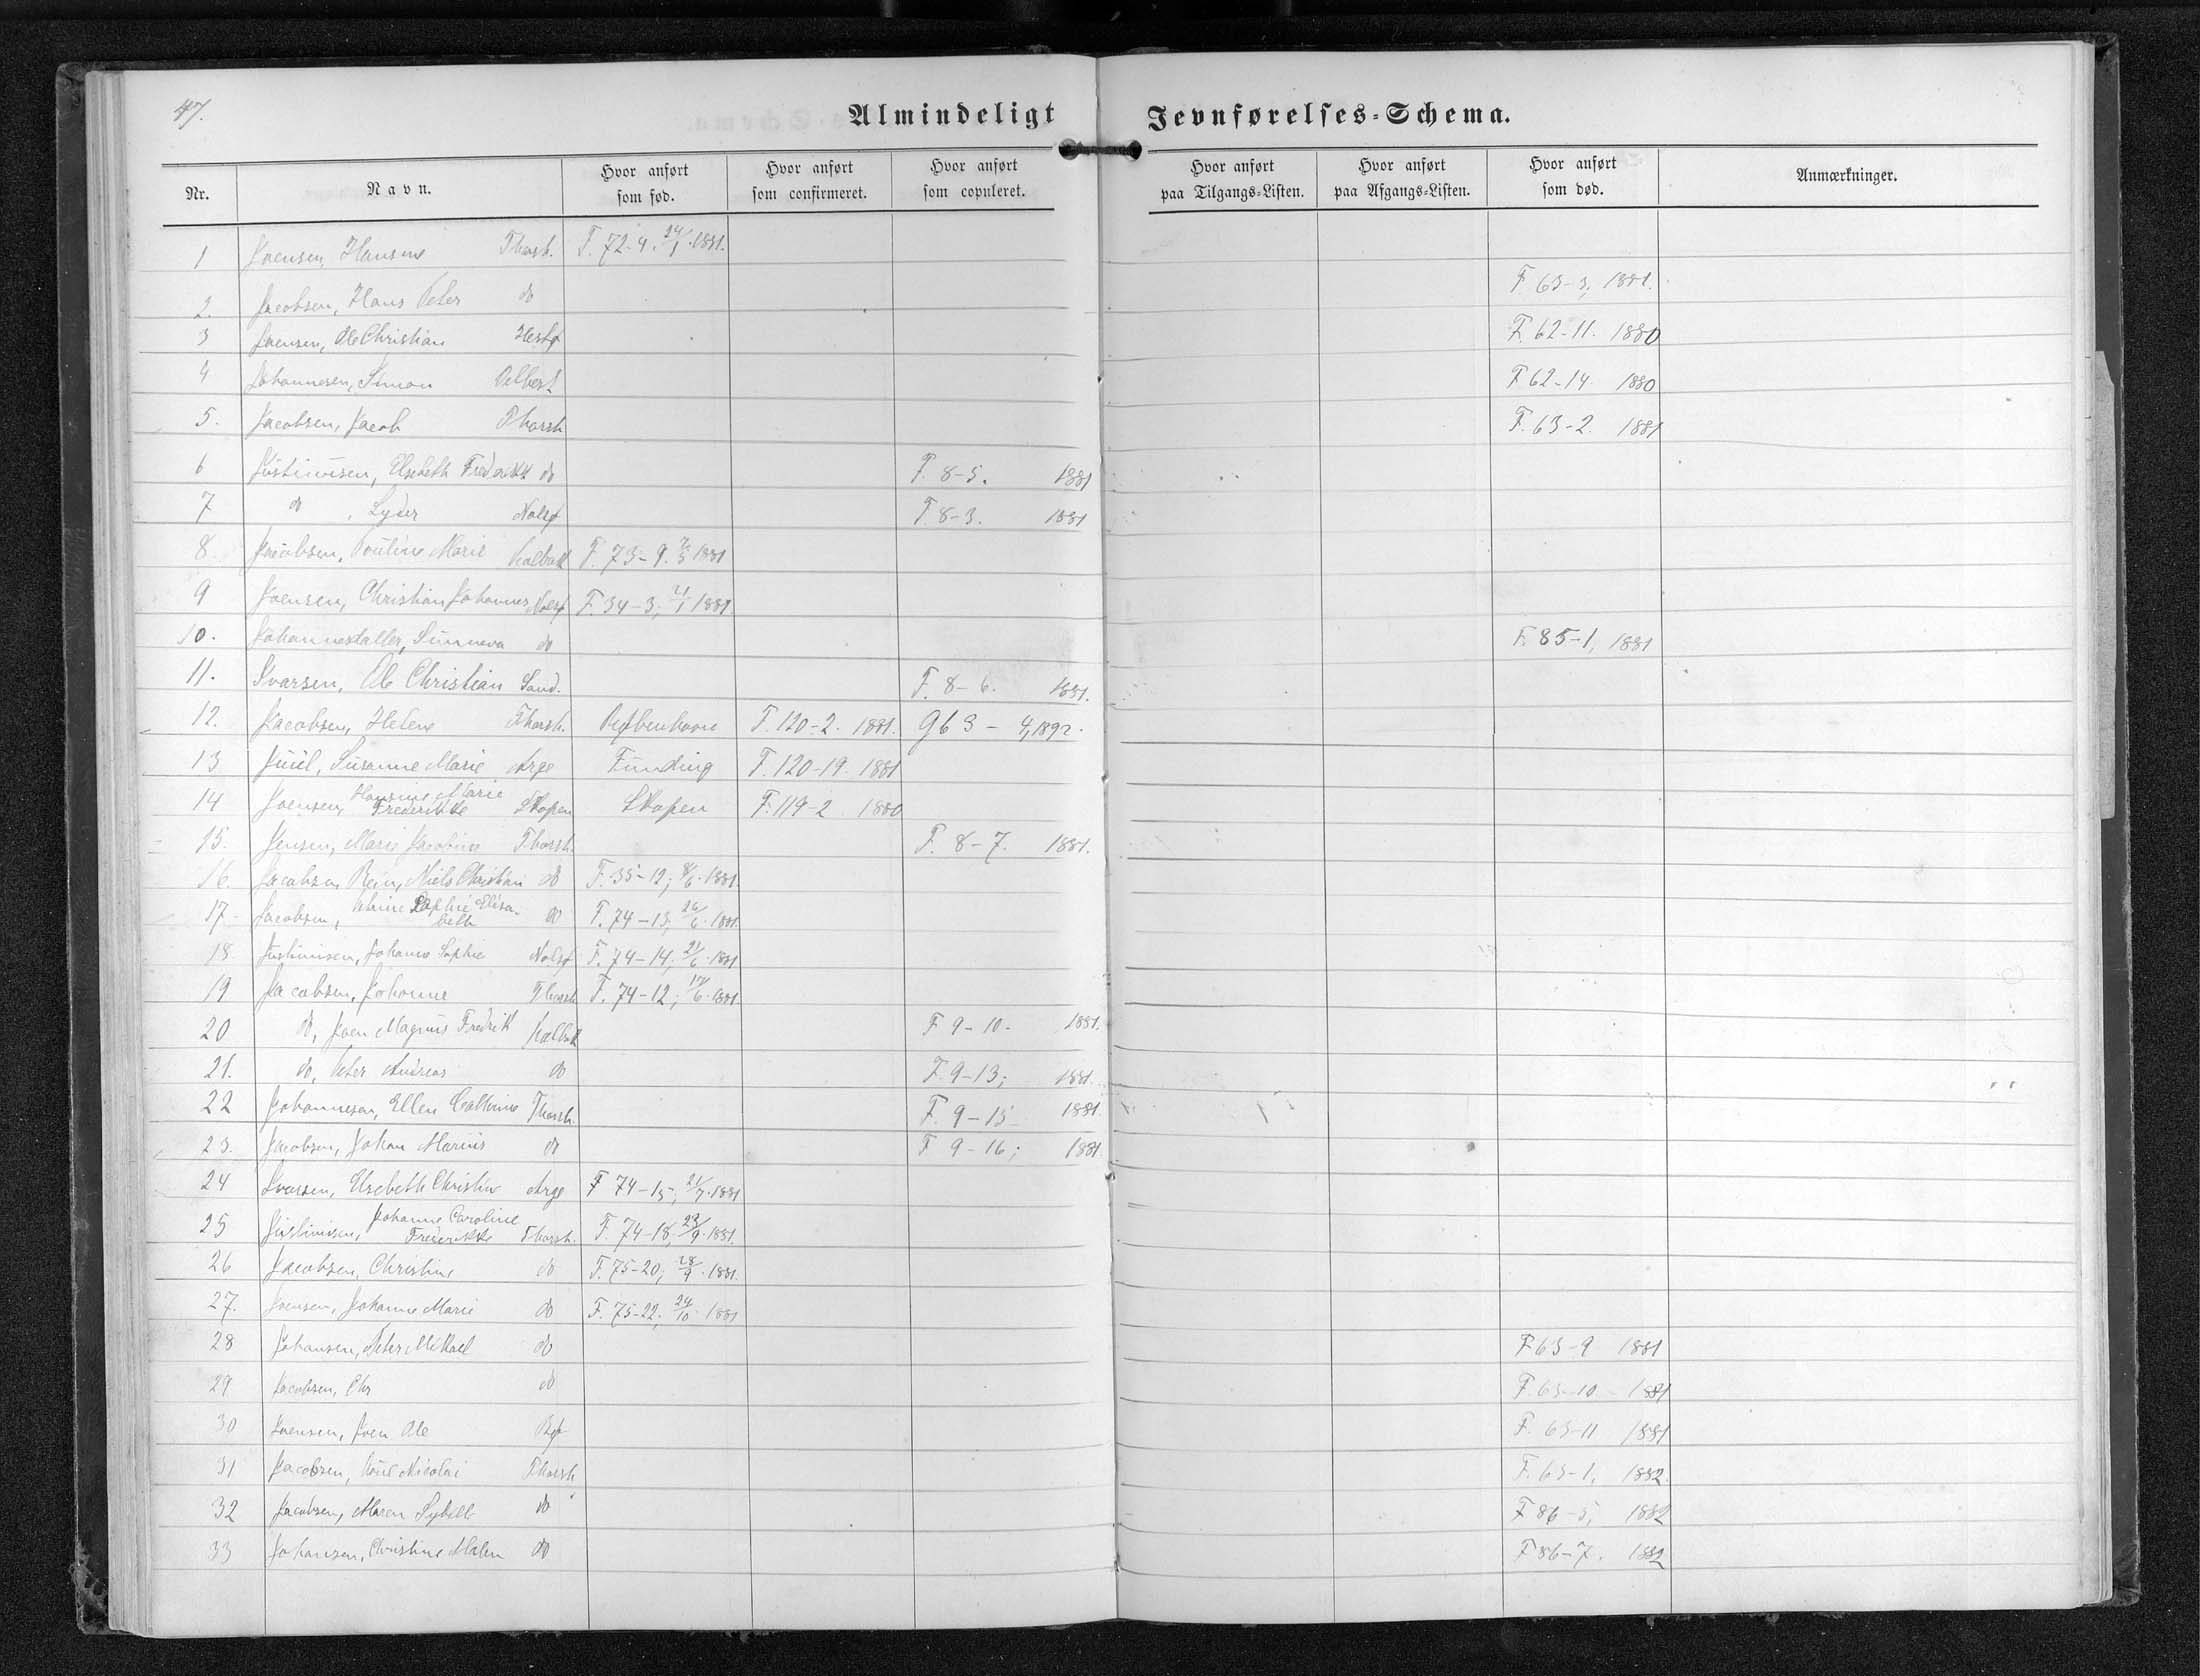 47.
Almindeligt Jevnførelses-Schema.
Nr. Navn. Hvor anført som fød. Hvor anført som confirmeret. Hvor anført som copuleret. Hvor anført paa Tilgangs-Listen. Hvor anført paa Afgangs-Listen. Hvor anført som død. Anmærkninger.
1 Joensen, Hansine Thorsh. F. 72-4. 24/1.1881.
2. Jacobsen, Hans Peter do F. 63-3, 1881.
3 Joensen, Ole Christian Hestø F. 62-11. 1880
4 Johannesen, Simon F 62-14. 1880
5. Jacobsen, Jacob Thorsh F. 63-2. 1881
6 Justinusen, Elsebeth Frederikke do F. 8-5. 1881
7 do, Nolsø F. 8-3. 1881
8. Jacobsen, Pouline Marie Kalbak F. 73-9. 1881
9 Joensen, Christian Johannes Nolsø F. 34-3; 21/1 1881.
10. Johannesdatter, Sunneva do F. 85-1, 1881
11. Ivarsen, Ole Christian Sand. F. 8-6. 1881.
12. Jacobsen, Helene Thorsh. Kjøbenhavn F. 120-2. 1881. 963-4, 1892.
13 Juul, Susanne Marie Arge Funding F. 120-19. 1881
14 Joensen, Hansine Marie Frederikke Skopen Skopen F. 119-2. 1880
15. Jensen, Marie Jacobine Thorsh. F. 8-7. 1881.
16. Jacobsen Rein, Niels Christian do F. 35-12; 8/6.1881.
17 Jacobsen, Sophie Elisabeth do F. 74-13; 26/6.1881.
18. Justinusen, Johanne Sophie Nolsø F. 74-14; 21/6.1881
19 Jacobsen, Johanne Thorsh F. 74-12; 17/6.1881
20 do, Joen Magnus Fredrik Kalbak F 9-10- 1881.
21. do, Peter Andreas do F. 9-13; 1881.
22 Johannesen, Ellen Cathrine Thorsh. F. 9-15- 1881.
23. Jacobsen, Johan Marius do F 9-16; 1881
24 Ivarsen, Elsebeth Christine Arge F 74-15; 21/7.1881
25 Justinusen, Johanne Caroline Frederikke Thorsh. F. 74-18; 23/9.1881.
26 Jacobsen, Christine do F. 75-20; 28/9.1881.
27. Joensen, Johanne Marie do F. 75-22; 24/10.1881
28 Johansen, Peter Mikael do F 63-9 1881
29 Jacobsen, Chr do F. 63-10- 1881
30 Joensen, Joen Ole F. 63-11 1881
31 Jacobsen, Poul Nicolai Thorsh F. 63-1, 1882.
32 Jacobsen, Maren Sybille do F 86-5, 1882
33 Johansen, Christine Malene do F 86-7. 1882